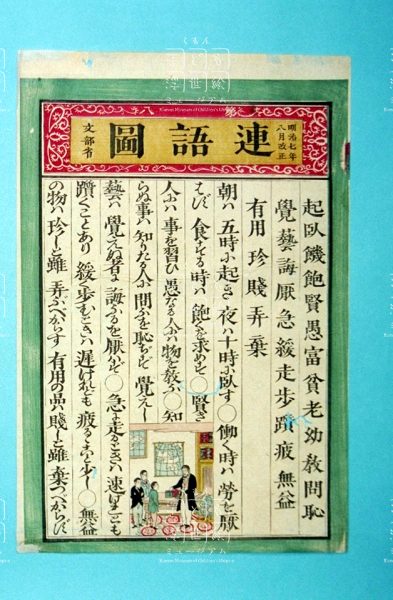 明治七年
八月改正
連語圖
文部省
起臥饑飽賢愚富貧老幼教問恥
覺藝誨厭急緩走歩躓疲無益
有用珍賤弄棄
朝ハ五時に起き夜ハ十時に臥す○働く時ハ勞を厭
はず食する時ハ飽くを求めず○賢き
人にハ事を習ひ愚なる人にハ物を教ふ○知
らぬ事ハ知りたる人に問ふを恥ぢず覺えし
藝ハ覺えぬ者に誨ふるを厭はず○急ぎ走るときハ速けれども
躓くことあり緩く歩むときハ遲けれども疲るゝこと少し○無益
の物ハ珍しと雖弄ぶべからず有用の品ハ賤しと雖棄つべからず